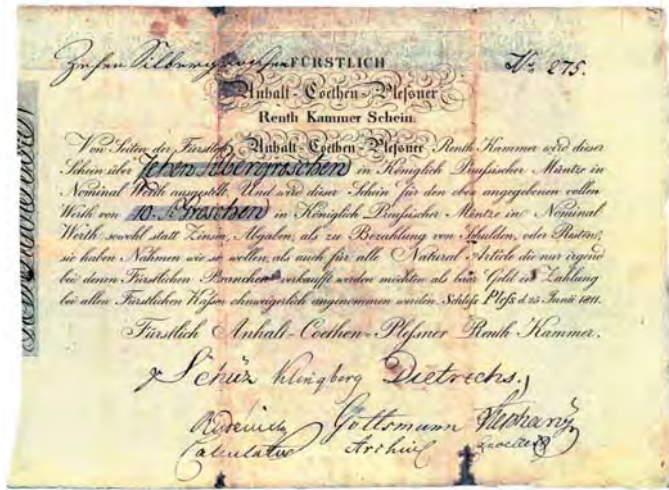 Zehen Silbergroschen FÜRSTLICH No 275.
Anhalt-Coethen-Plessner
Renth Kammer Schein.
Von Seiten der Fürstlich Anhalt-Coethen-Plessner Renth Kammer wird dieser
Schein über Zehen Silbergroschen in Königlich Preußischer Müntze in
Nominal Werth ausgestelt, Und wird dieser Schein für den oben angegebenen vollen
Werth von 10. S. Groschen in Königlich Preußischer Müntze in Nominal
Werth sowohl statt Zinsen, Abgaben, als zu Bezahlung von Schulden, oder Resten,
sie haben Nahmen wie sie wollen, als auch für alle Natural Article die nur irgend
bei denen Fürstlichen Branchen verkauft werden möchten als baar Geld in Zahlung
bei allen Fürstlichen Kassen ohnweigerlich angenommen werden. Schloß Pless d. 25 Junii 1811.
Fürstlich Anhalt-Coethen-Plessner Renth Kammer.
Schüz Klingberg Dietrichs.
Gottsmann Stephany
Calculator Archiv